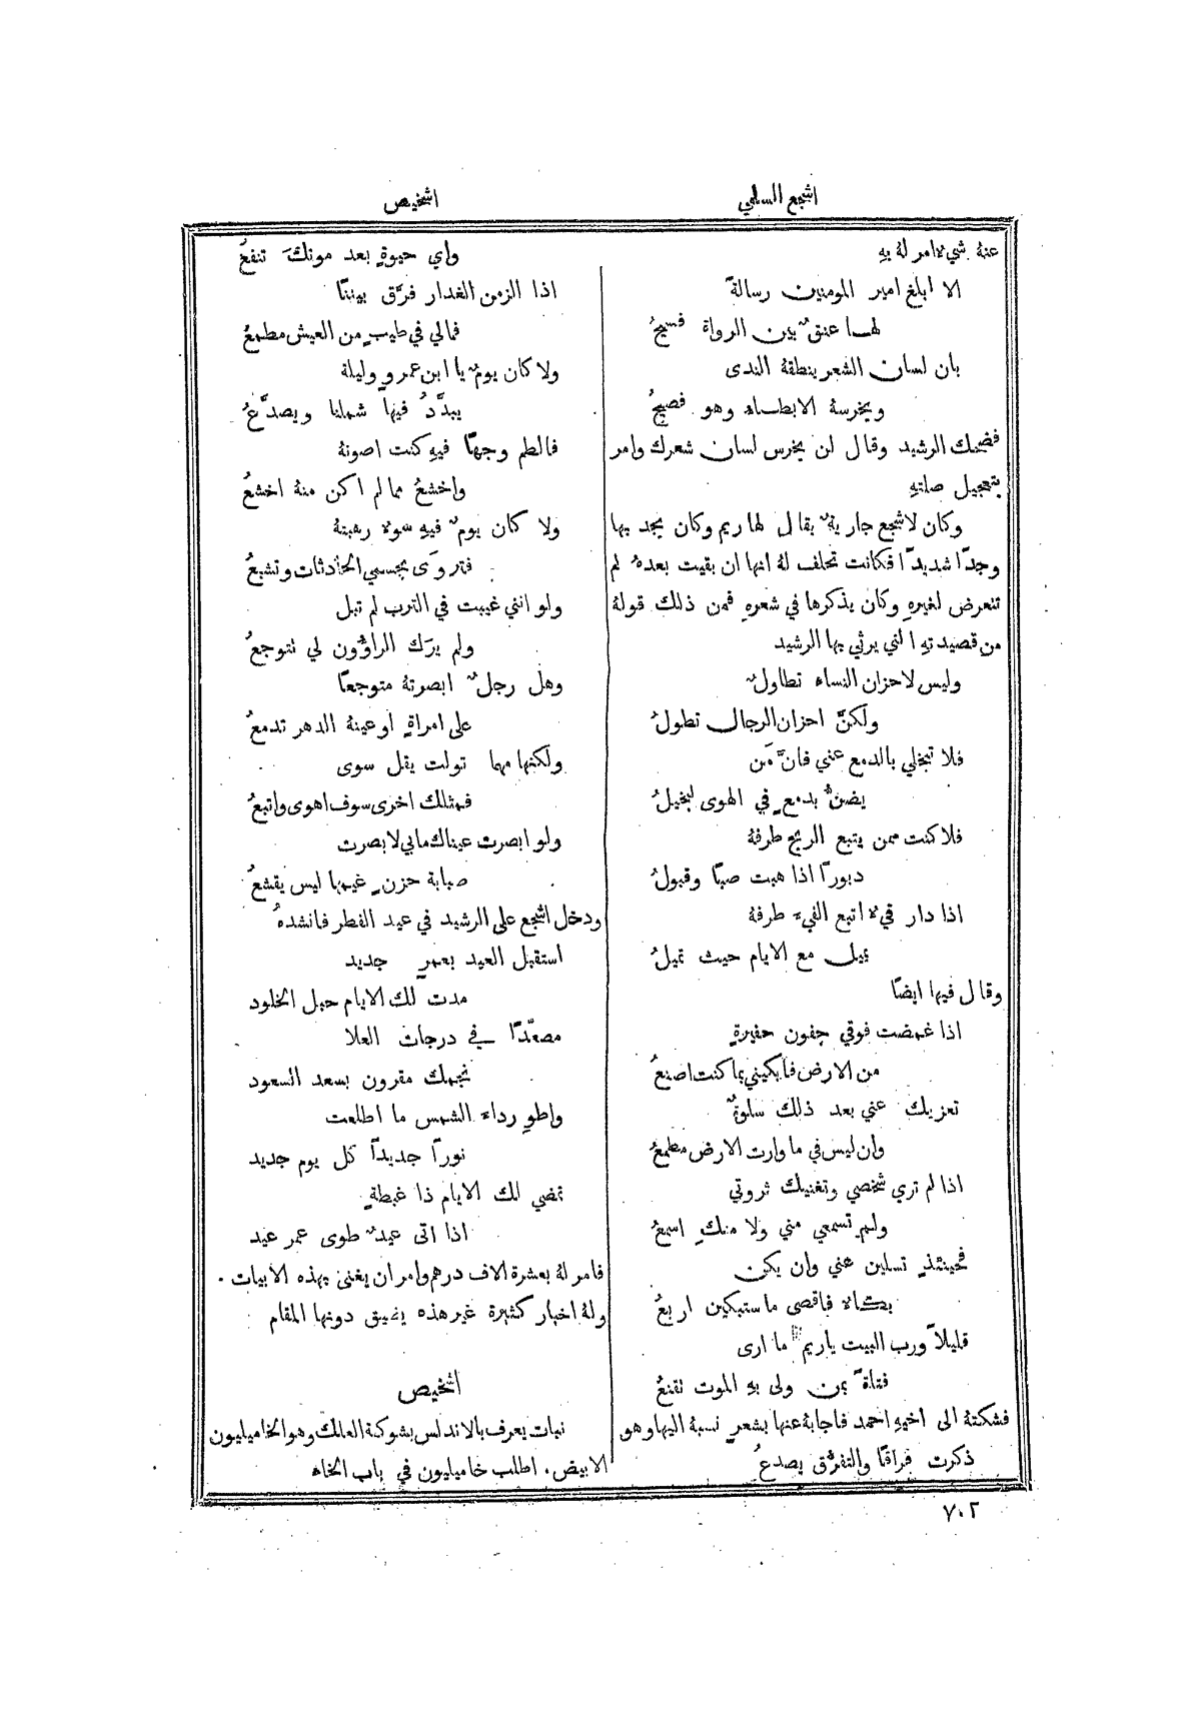 اشجع السلمي
اشخيص
عنهُ شيءٌ امر لهُ بهِ
الا ابلغ امير المومنين رسالةً
لها عنقٌ بين الرواة فسيحُ
بان لسان الشعر ينطقهُ الندى
ويخرسهُ الابطاء وهو فصيحُ
فضحك الرشيد وقال لن يخرس لسان شعرك وامر
بتعجيل صلتهِ
وكان لاشجع جاريةٌ يقال لها ريم وكان يجد بها
وجدًا شديدًا فكانت تحلف لهُ انها ان بقيت بعدهُ لم
تتعرض لغيرهِ وكان يذكرها في شعرهِ فمن ذلك قولهُ
من قصيدتهِ التي يرثي بها الرشيد
وليس لاحزان النساء تطاولٌ
ولكنَّ احزان الرجال تطولُ
فلا تبخلي بالدمع عني فانَّ مَن
يضنُّ بدمعٍ في الهوى لبخيلُ
فلا كنت ممن يتبع الريح طرفهُ
دبورًا اذا هبت صبًا وقبولُ
اذا دار فيءٌ اتبع الفيءَ طرفهُ
يميل مع الايام حيث تميلُ
وقال فيها ايضًا
اذا غمضت فوقي جفون حفيرةٍ
من الارض فابكيني بما كنت اصنعُ
تعزيك عني بعد ذلك سلوةٌ
وان ليس في ما وارت الارض مطمعُ
اذا لم تري شخصي وتغنيك ثروتي
ولم تسمعي مني ولا منكِ اسمعُ
فحينئذٍ تسلين عني وان يكن
بكاءٌ فاقصى ما ستبكين اربعُ
قليلاً ورب البيت يا ريم ما ارى
فتاةً بمن ولى بهِ الموت تقنعُ
فشكتهُ الى اخيهِ احمد فاجابهُ عنها بشعرٍ نسبهُ اليها وهو
ذكرت فراقًا والتفرُّق يصدعُ
واي حيوةٍ بعد موتكَ تنفعُ
اذا الزمن الغدار فرَّق بيننا
فمالي في طيبٍ من العيش مطمعُ
ولا كان يومٌ يا ابن عمرو وليلة
يبدَّدُ فيها شملنا ويصدَّعُ
فالطم وجهًا فيهِ كنت اصونهُ
واخشعُ مما لم اكن منهُ اخشعُ
ولا كان يومٌ فيهِ سوء رهبتهُ
فتروَى بجسمي الحادثات وتشبعُ
ولو انني غيبت في الترب لم تبل
ولم يرَك الراؤون لي تتوجعُ
وهل رجلٌ ابصرتهُ متوجعًا
على امراةٍ او عينهُ الدهر تدمعُ
ولكنها مهما تولت يقل سوى
فمثلك اخرى سوف اهوى واتبعُ
ولو ابصرت عيناك ما بي لابصرت
صبابة حزنٍ غيمها ليس يقشعُ
ودخل اشجع على الرشيد في عيد الفطر فانشدهُ
استقبل العيد بعمرٍ جديد
مدت لك الايام حبل الخلود
مصعّدًا في درجات العلا
نجمك مقرون بسعد السعود
واطوِ رداءَ الشمس ما اطلعت
نورًا جديدًا كل يوم جديد
تمضي لك الايام ذا غبطةٍ
اذا اتى عيدٌ طوى عمر عيد
فامر لهُ بعشرة الاف درهم وامر ان يغنى بهذه الابيات .
ولهُ اخبار كثيرة غير هذه يضيق دونها المقام
اشخيص
نبات يعرف بالاندلس بشوكة العلك وهو الخاميليون
الابيض . اطلب خاميليون في باب الخاء
٧٠٢